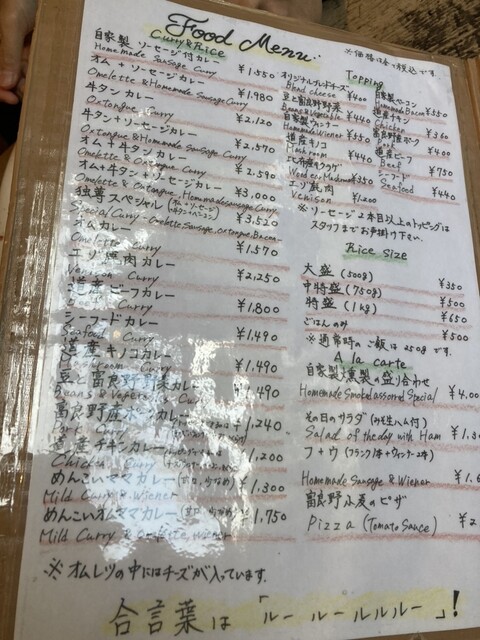 Food Menu
※価格は全て税込です。
Curry & Rice
自家製ソーセージ付カレー ¥1,550
Homemade Sausage Curry
オム+ソーセージカレー ¥1,980
Omelette & Homemade Sausage Curry
牛タンカレー ¥2,120
Oxtongue Curry
牛タン+ソーセージカレー ¥2,570
Oxtongue & Homemade Sausage Curry
オム+牛タンカレー ¥2,590
Omelette & Oxtongue Curry
オム+牛タン+ソーセージカレー ¥3,000
Omelette & Oxtongue, Homemade Sausage Curry
独尊スペシャル ¥3,520
Special Curry - Omelette, Sausage, oxtongue, Bacon
オムカレー ¥1,570
Omelette Curry
エゾ鹿肉カレー ¥2,250
Venison Curry
道産ビーフカレー ¥1,800
Curry
シーフードカレー ¥1,490
Seafood Curry
道産キノコカレー ¥1,490
Curry
豆と富良野野菜カレー ¥1,490
Beans & Vegetable Curry
富良野産ポークカレー ¥1,240
Pork Curry
道産チキンカレー ¥1,200
Chicken Curry
めんこいママカレー ¥1,300
Mild Curry & Wiener
めんこいオムママカレー ¥1,750
Mild Curry & Omelette, Wiener
※オムレツの中にはチーズが入っています。
Topping
オリジナルブレンドチーズ ¥400
Blend cheese
豆と富良野野菜 ¥440
Beans & Vegetable
自家製ウィンナー ¥350
Homemade Wiener
道産キノコ ¥440
Mushroom
¥350
エゾ鹿肉 ¥1,200
Venison
自家製ベーコン ¥550
Homemade Bacon
道産チキン ¥360
Chicken
富良野産ポーク ¥400
Pork
道産ビーフ ¥750
Beef
シーフード ¥440
Seafood
※ソーセージ2本目以上のトッピングは
スタッフまでお声掛け下さい。
Rice Size
大盛(500g) ¥350
中特盛(750g) ¥500
特盛(1kg) ¥650
ごはんのみ ¥500
※通常時のご飯は250gです。
A la carte
自家製燻製の盛り合わせ
Homemade Smoked assorted Special
その日のサラダ(みそ生ハム付)
Salad of the day with Ham
フ+ウ(フランク1本+ウィンナー2本)
Homemade Sausage & Wiener
富良野小麦のピザ
Pizza (Tomato Sauce)
合言葉は「ルー ルールルルー」!